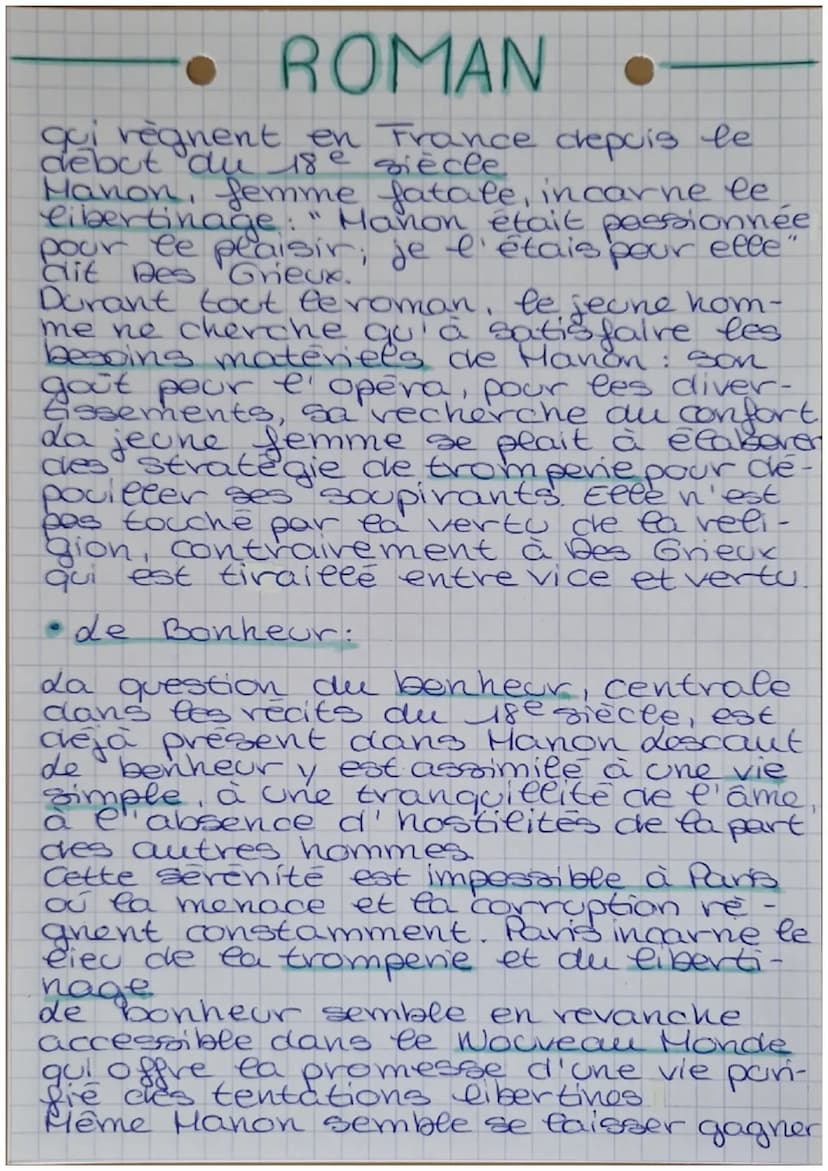 ROMAN
qui règnent en France depuis le
début du 18e siècle
Manon, femme fatale, incarne le
libertinage : " Manon était passionnée
pour le plaisir ; je l'étais pour elle"
dit Des Grieux.
Durant tout le roman, le jeune hom-
me ne cherche qu'à satisfaire les
besoins matériels de Manon : son
goût pour l'opéra, pour les diver-
tissements, sa recherche du confort
La jeune femme se plait à élaborer
des stratégie de tromperie pour dé-
pouiller ses soupirants. Elle n'est
pas touché par la vertu de la reli-
gion, contrairement à Des Grieux
qui est tiraillé entre vice et vertu.
• Le Bonheur :
La question du bonheur, centrale
dans les récits du 18e siècle, est
déjà présent dans Manon Lescaut
Le bonheur y est assimilé à une vie
simple, à une tranquillité de l'âme,
à l'absence d'hostilités de la part
des autres hommes
Cette sérénité est impossible à Paris
où la menace et la corruption rè-
gnent constamment. Paris incarne le
lieu de la tromperie et du liberti-
nage
Le bonheur semble en revanche
accessible dans le Nouveau Monde
qui offre la promesse d'une vie puri-
fié des tentations libertines
Même Manon semble se laisser gagner